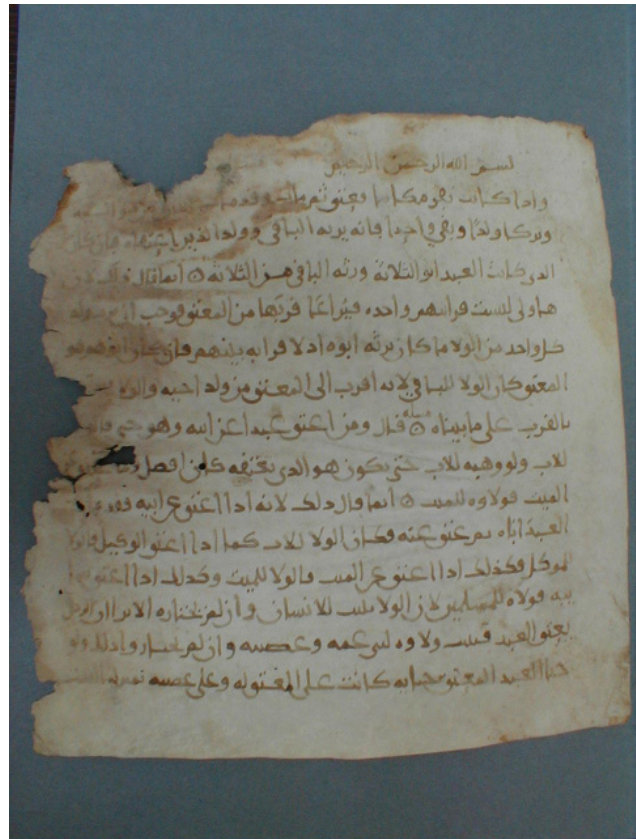 بسم الله الرحمن الرحيم
واذا كانت مكاتبا فعتق ثم مات وقد
وتركا ولدا وبقي واحد فانه يرثه الباقي وولدا الذين
الذي كانت العبد ابو الثلاثة ورثه الباقي من الثلاثة انما قال ذلك لان
هاولي ليست قرابتهم واحدة فيراعا قربها من المعتق فوجب
كل واحد من الولا ما كان يرثه ابوه اذ لا قرابه بينهم فان كان
المعتق كان الولا للباقي لانه اقرب الى المعتق من ولد اخيه والولا
بالقرب على ما بيناه مسئلة قال ومن اعتق عبدا عن ابيه وهو حي
للاب ولو وهبه للاب حتى يكون هو الذي يعتقه كان افضل
الميت فولاوه للميت انما قال ذلك لانه اذا اعتق عن ابيه فقد
العبد اياه ثم عتق عنه فكان الولا للاب كما اذا اعتق الوكيل فالولا
للموكل فكذلك اذا اعتق عن الميت فالولا للميت وكذلك اذا اعتق
فولاه للمسلمين لان الولا يثبت للانسان وان لم يختاره الا ترا ان الرجل
يعتق العبد فيثبت ولاوه لبني عمه وعصبته وان لم يختاروا ذلك ولو
جنا العبد المعتق جنايه كانت على المعتق له وعلى عصبته